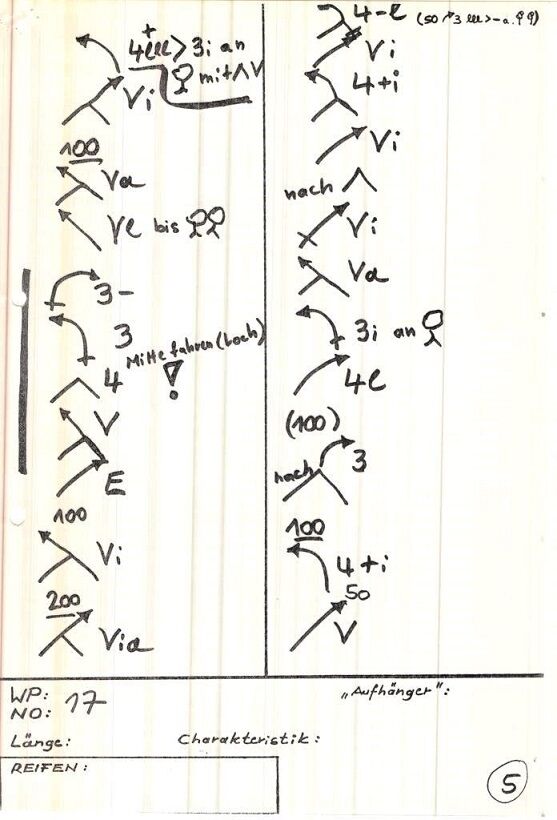 +
4lll > 3i an
mit ∧ V
Vi
100
Va
Vl bis
3-
3
Mitte fahren (hoch)
!
4
V
E
100
Vi
200
Via
4-l (50 3 lll > -a.)
Vi
4+i
Vi
nach ∧
Vi
Va
3i an
4l
(100)
3
nach
100
4+i
50
V
WP: 17
NO:
„Aufhänger":
Länge: Charakteristik:
REIFEN:
5